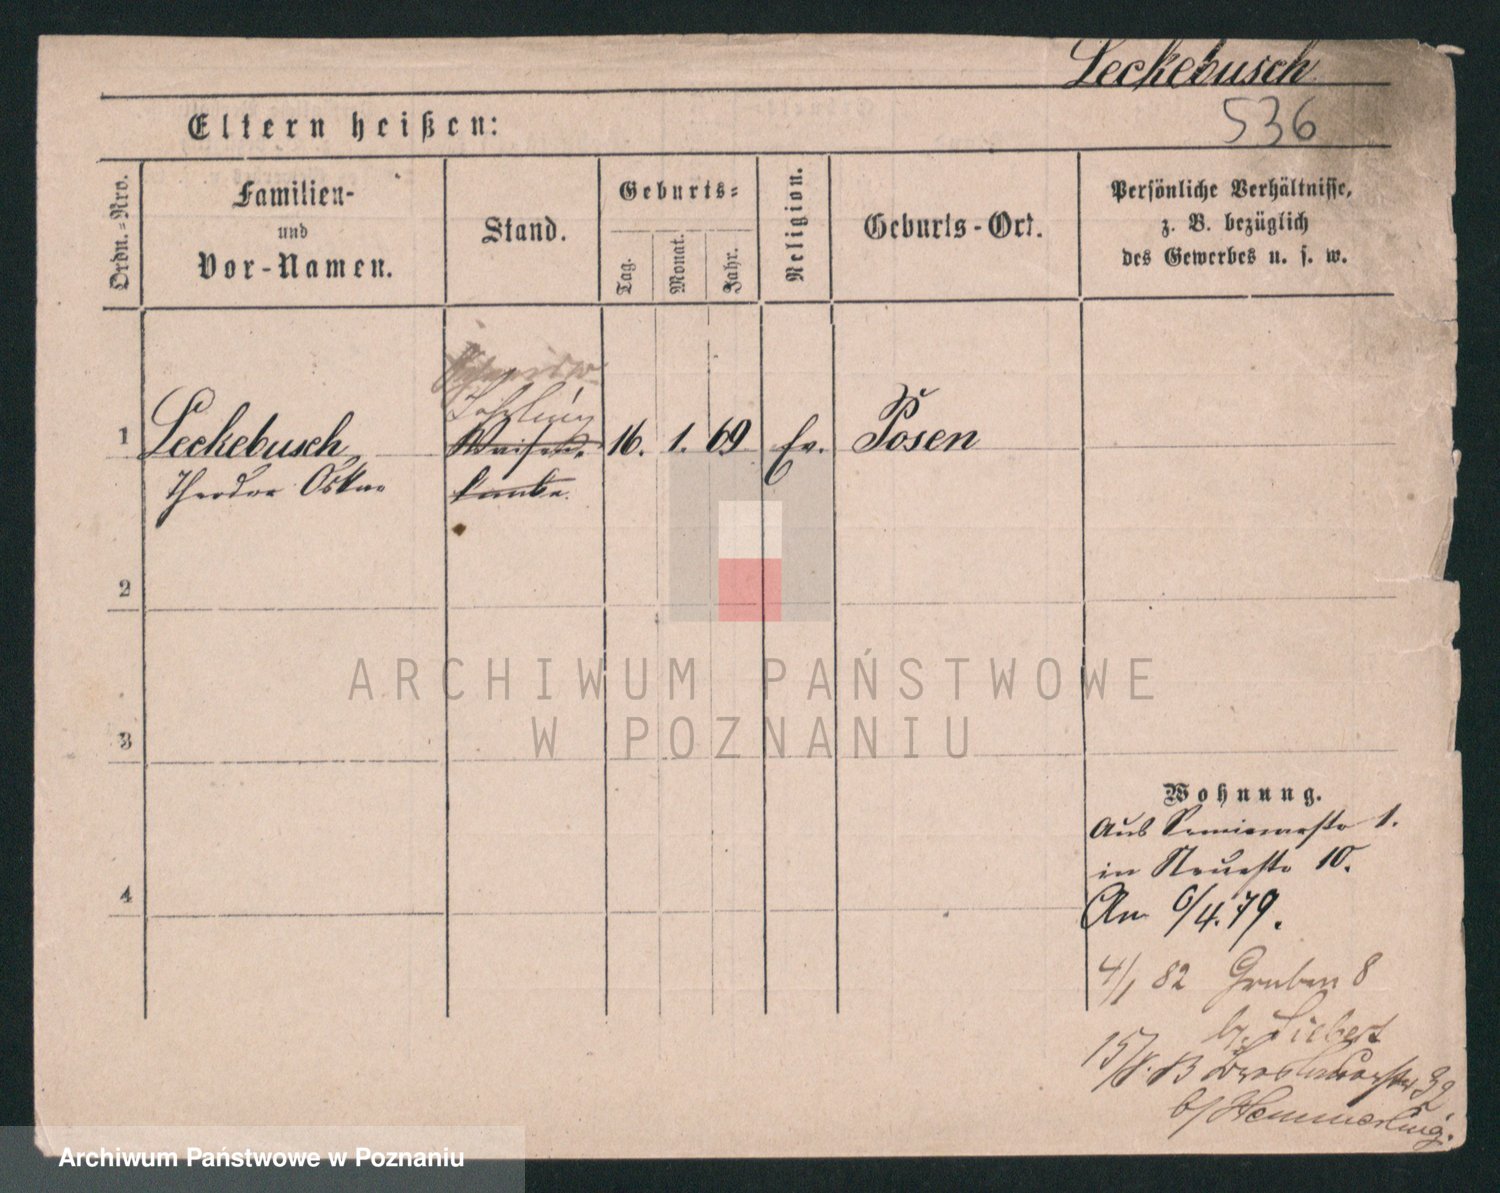 Leckebusch
536
Eltern heißen:
Ordn.-Nro.
Familien-
und
Vor-Namen.
Stand.
Geburts-
Tag.
Monat.
Jahr.
Religion.
Geburts-Ort.
Persönliche Verhältnisse,
z. B. bezüglich
des Gewerbes u. s. w.
Lehrling
1 Leckebusch Waisen- 16. 1. 69 Ev. Posen
Theodor Oskar knabe.
2
3
4
ARCHIWUM PAŃSTWOWE
W POZNANIU
Wohnung.
Aus 1.
in Neuestr 10.
Am 6/4.79.
4/1 82 Graben 8
b/ Siebert
15/8. 83 Breslauerstr 32
b/ Hemmerling.
Archiwum Państwowe w Poznaniu